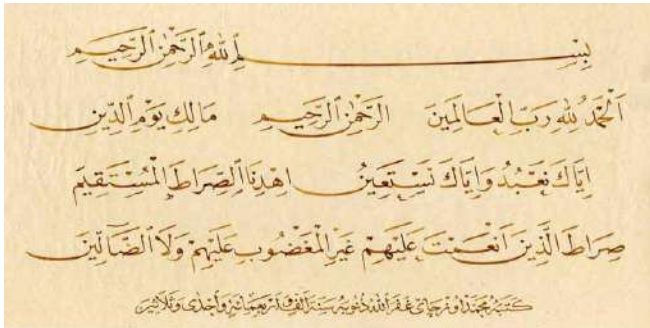 بِسْمِ اللهِ الرَّحْمٰنِ الرَّحِيمِ
اَلْحَمْدُ لِلّٰهِ رَبِّ الْعَالَمِينَ الرَّحْمٰنِ الرَّحِيمِ مَالِكِ يَوْمِ الدِّينِ
اِيَّاكَ نَعْبُدُ وَاِيَّاكَ نَسْتَعِينُ اهْدِنَا الصِّرَاطَ الْمُسْتَقِيمَ
صِرَاطَ الَّذِينَ اَنْعَمْتَ عَلَيْهِمْ غَيْرِ الْمَغْضُوبِ عَلَيْهِمْ وَلَا الضَّآلِّينَ
كتبه محمد اوزچاي غفر الله ذنوبه سنة الف واربعمائة واحدى وثلاثين